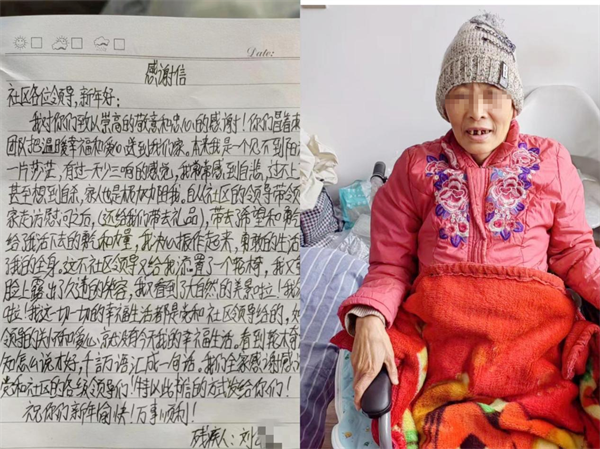 Date:
感谢信
社区各位领导，新年好：
我对你们致以崇高的敬意和忠心的感谢！你们冒着
团队把温暖幸福和爱心送到我们家。本来我是一个见不到阳
一片茫茫，有过一天少三晌的感觉，我常常感到自悲，过不
甚至想到自杀，家人也是极力劝阻我。自从社区的领导带领
家走访慰问之后，（还给我们带去礼品），带去希望和
给我活下去的 和力量，我决心振作起来，勇敢的生活
我的全身。这不社区领导又给我添置了一个轮椅，我又
脸上露出久违的笑容，我又看到了大自然的美景啦！我
啦！我这一切一切的幸福生活都是党和社区领导给的，如
领导的关怀和爱心，就没有今天我的幸福生活。看到
知怎么说才好，千言万语汇成一句话，我们全家感谢感
党和社区的各级领导们！特以此 的方式发给你们！
祝你们新年愉快！万事顺利！
残疾人：刘